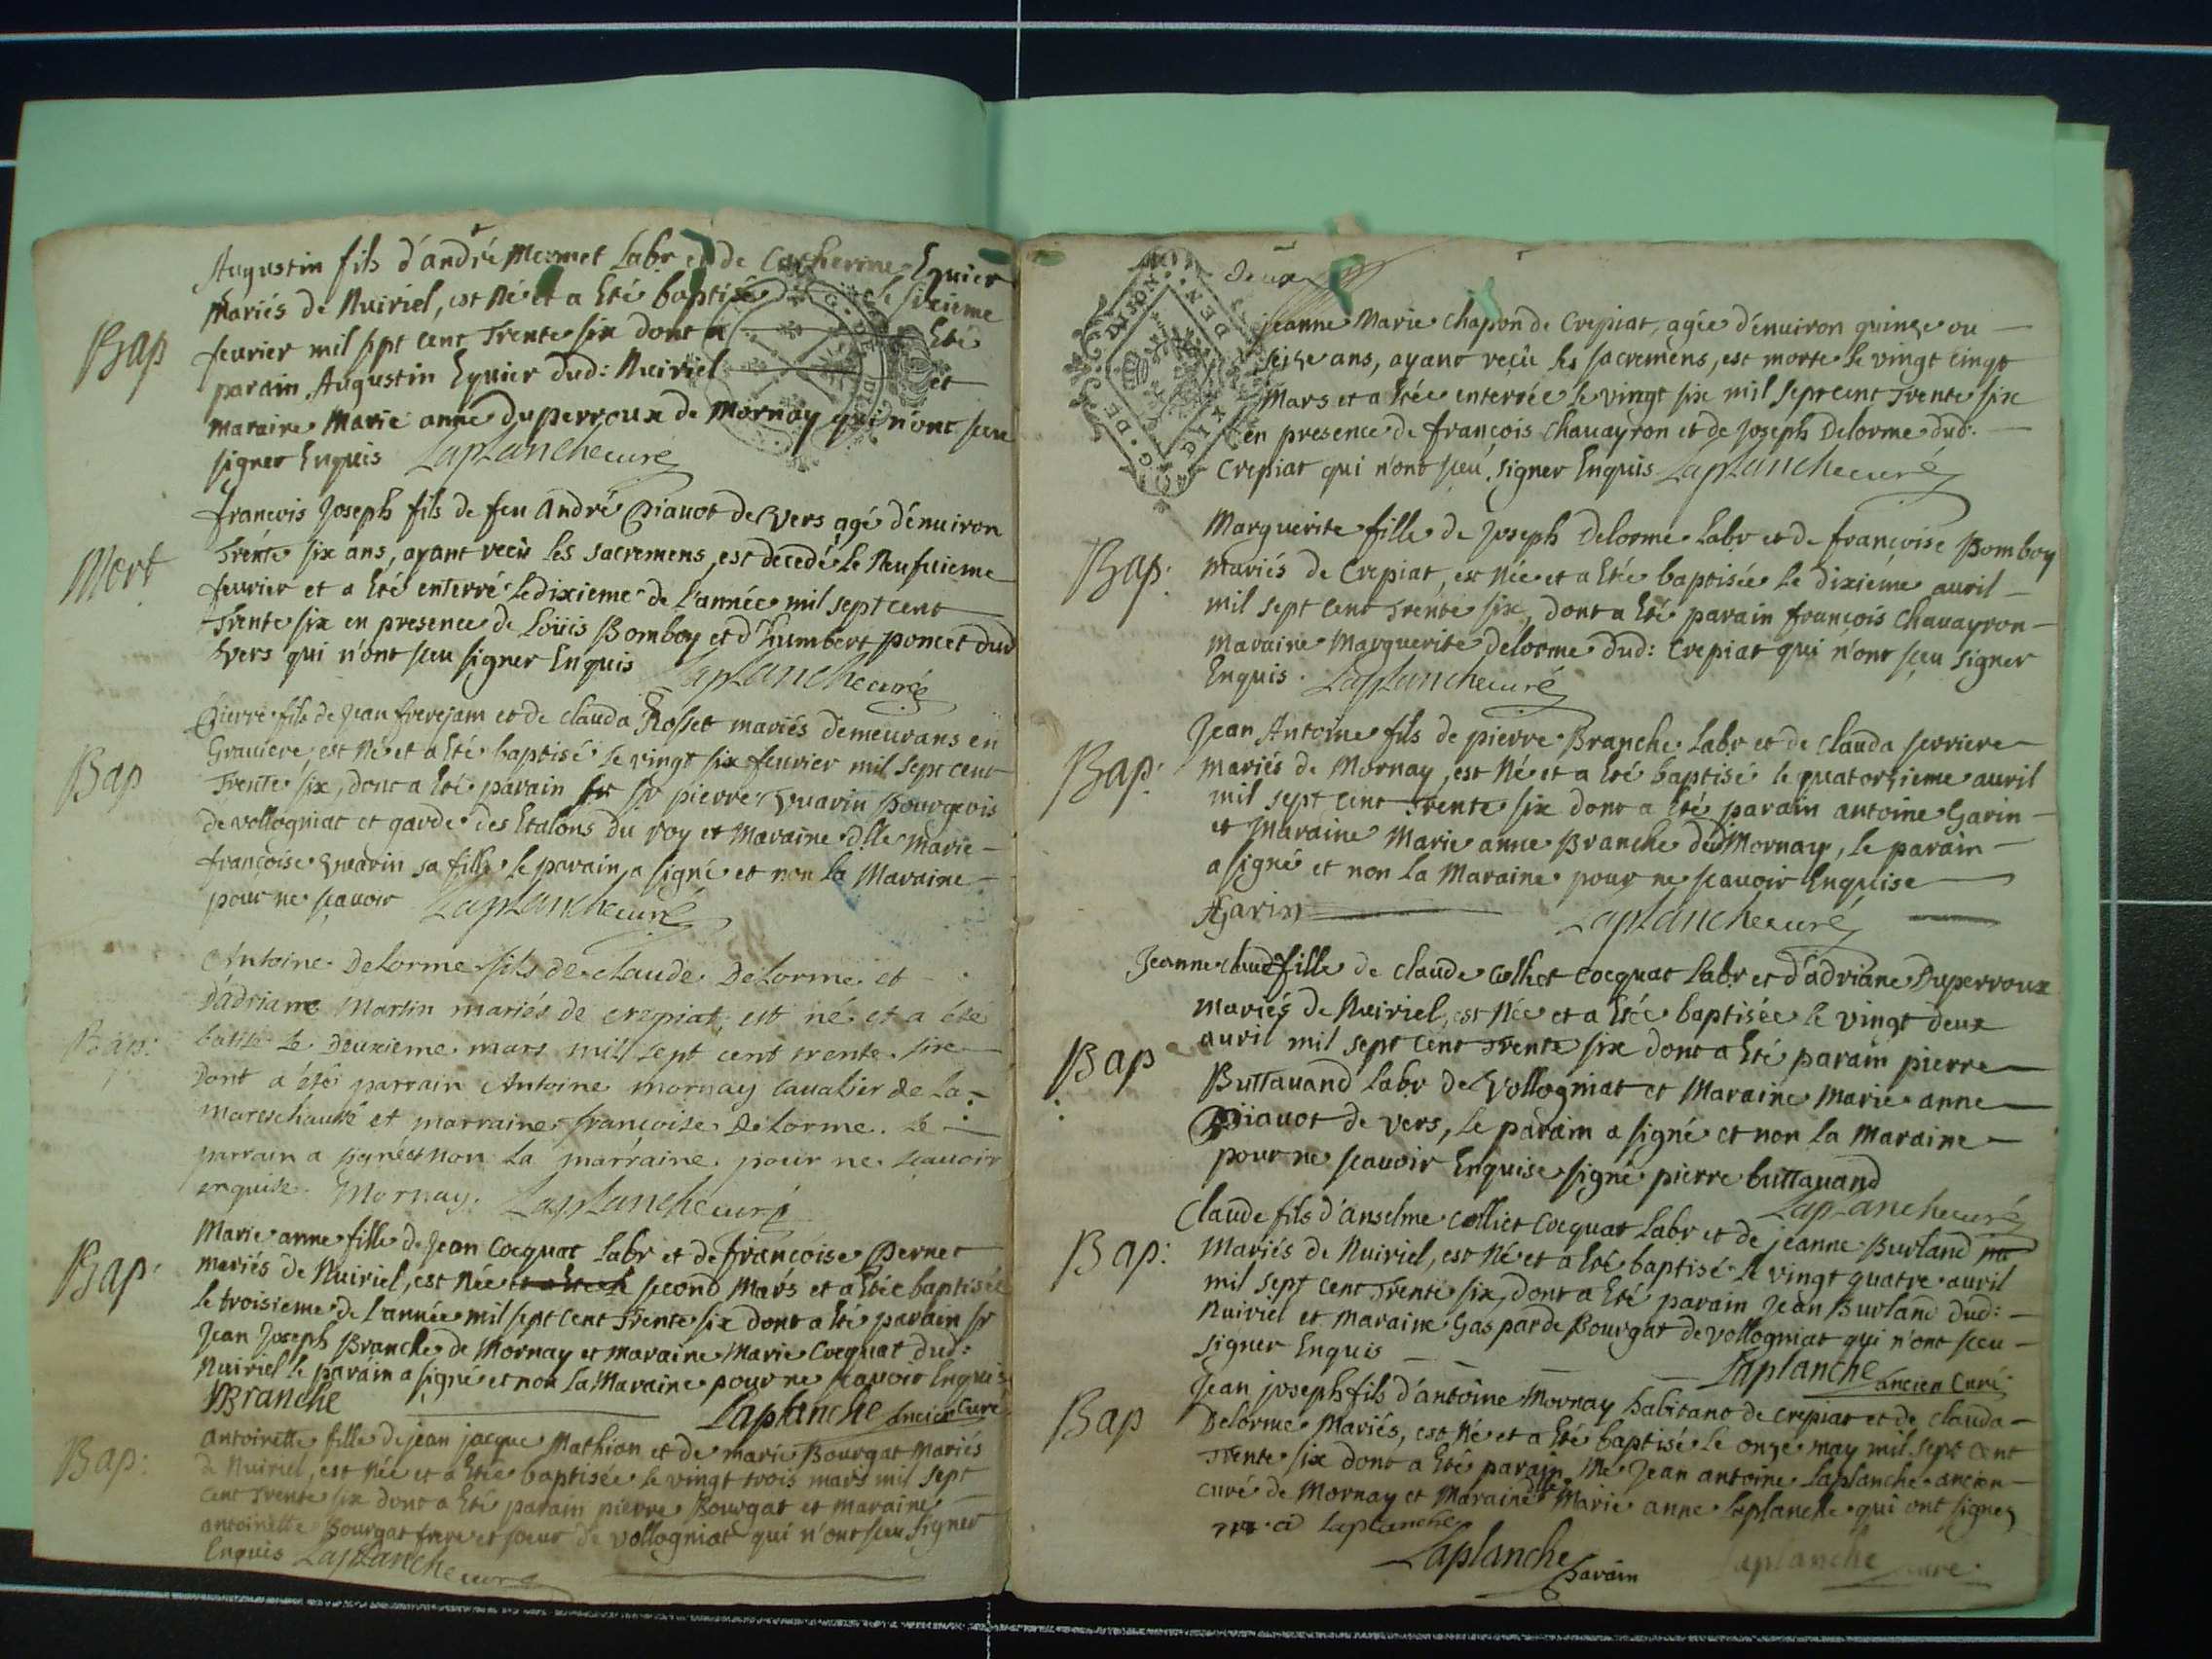 Augustin fils d'andré Mermet Labr et de Catherine Eynier
Mariés de Nuiriel, est Né et a Eté baptisé le sixieme
feurier mil sept cent Trente six dont a Eté
Bap
parain Augustin Eynier dud: Nuiriel et
maraine Marie anne duperroux de Mornay qui n'ont sceu
signer Enquis Laplanche curé
francois Joseph fils de feu André Piauot de Vers agé d'enuiron
Mort
Trente six ans, ayant recü les sacremens, est decedé le Neufuieme
feurier et a Eté enterré le dixieme de l'année mil sept cent
Trente six en presence de Loüis Bomboy et d'humbert poncet dud
Vers qui n'ont sceu signer Enquis Laplanche curé
Pierre fils de Jean frerejam et de Clauda Rosset mariés demeurans en
Grauiere, est Né et a Eté baptisé le vingt six feurier mil sept cent
Bap
Trente six, dont a Eté parain sr pierre Guarin Bourgeois
de vollogniat et garde des Etalons du roy et Maraine dlle Marie
françoise Guarin sa fille le parain a signé et non la Maraine
pour ne scauoir Laplanche curé
Antoine Delorme fils de claude Delorme et
D'adriane Martin mariés de crepiat, est né et a été
Bap:
batisé le Deuxieme mars mil sept cent trente six
Dont a été parrain Antoine mornay Caualier de La
mareschaussé et marraine françoise Delorme. Le
parrain a signé et non la marraine pour ne scauoir
enquise. Mornay. Laplanche curé
Marie anne fille de Jean Cocquat Labr et de françoise Pernet
Bap:
mariés de Nuiriel, est Née second Mars et a Etée baptisée
le troisieme de l'année mil sept cent Trente six dont a Eté parain sr
Jean Joseph Branche de Mornay et maraine Marie Cocquat dud:
Nuiriel le parain a signé et non la Maraine pour ne scauoir Enquis
Branche Laplanche ancien Curé
Bap:
antoinette fille de jean jacque Mathian et de marie Bourgat Mariés
de Nuiriel, est Née et a Etée baptisée le vingt trois mars mil sept
cent Trente six dont a Eté parain pierre Bourgat et maraine
antoinette Bourgat frere et soeur de vollogniat qui n'ont sceu signer
Enquis Laplanche curé
Deux
G. DE DIJON
jeanne Marie Chapon de Crepiat, agée d'enuiron quinze ou
seize ans, ayant reçu les sacremens, est morte le vingt cinq
Mars et a Etée enterrée le vingt six mil sept cent Trente six
en presence de françois Chauayron et de Joseph Delorme dud:
Crepiat qui n'ont sceu signer Enquis Laplanche curé
Marguerite fille de Joseph Delorme Labr et de françoise Bomboy
Bap:
mariés de Crepiat, est Née et a Etée baptisée le dixiéme auril
mil sept cent Trente six, dont a Eté parain françois Chauayron
maraine Marguerite Delorme dud: Crepiat qui n'ont sceu signer
Enquis. Laplanche curé
Jean Antoine fils de pierre Branche Labr et de Clauda serriere
Bap:
mariés de Mornay, est Né et a Eté baptisé le quatorzieme auril
mil sept cent Trente six dont a Eté parain antoine Garin
et Maraine Marie anne Branche dud Mornay, le parain
a signé et non la Maraine pour ne scauoir Enquise
AGarin Laplanche curé
Jeanne claud fille de Claude Colliet Cocquat Labr et d'adriane Duperroux
mariés de Nuiriel, est Née et a Etée baptisée le vingt deux
Bap
auril mil sept cent Trente six dont a Eté parain pierre
Buttauand Labr de Vollogniat et Maraine Marie anne
Piauot de vers, le parain a signé et non la Maraine
pour ne scauoir Enquise signé pierre buttauand
Laplanche curé
Claude fils d'anselme Colliet Cocquat Labr et de jeanne Burland
Bap:
Mariés de Nuiriel, est Né et a Eté baptisé le vingt quatre auril
mil sept cent Trente six, dont a Eté parain Jean Burland dud:
Nuiriel et maraine Gasparde Bourgat de vollogniat qui n'ont sceu
signer Enquis Laplanche ancien Curé
Jean joseph fils d'antoine Mornay habitant de Crepiat et de Clauda
Bap
Delorme Mariés, est Né et a Eté baptisé le onze may mil sept cent
Trente six dont a Eté parain Me Jean antoine Laplanche ancien
curé de Mornay et Maraine dlle Marie anne Laplanche qui ont signes
m a Laplanche
Laplanche Parain Laplanche curé